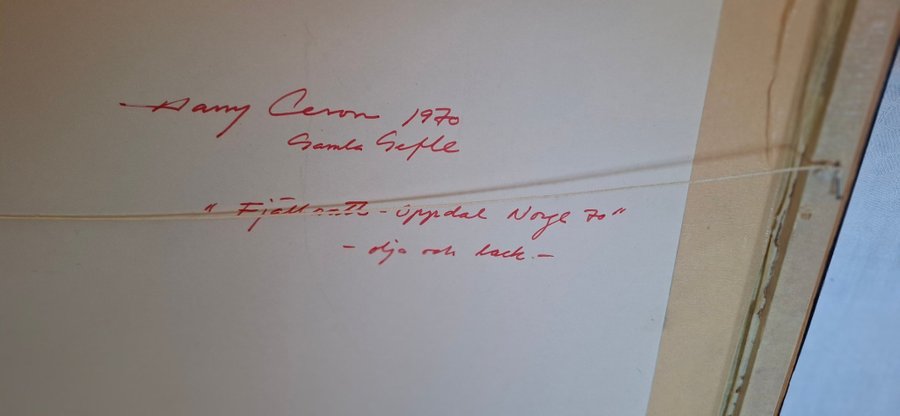 Harry Ceson 1970
Gamla Gefle
"Fjällnatt - Oppdal Norge 70"
- olja och lack. -